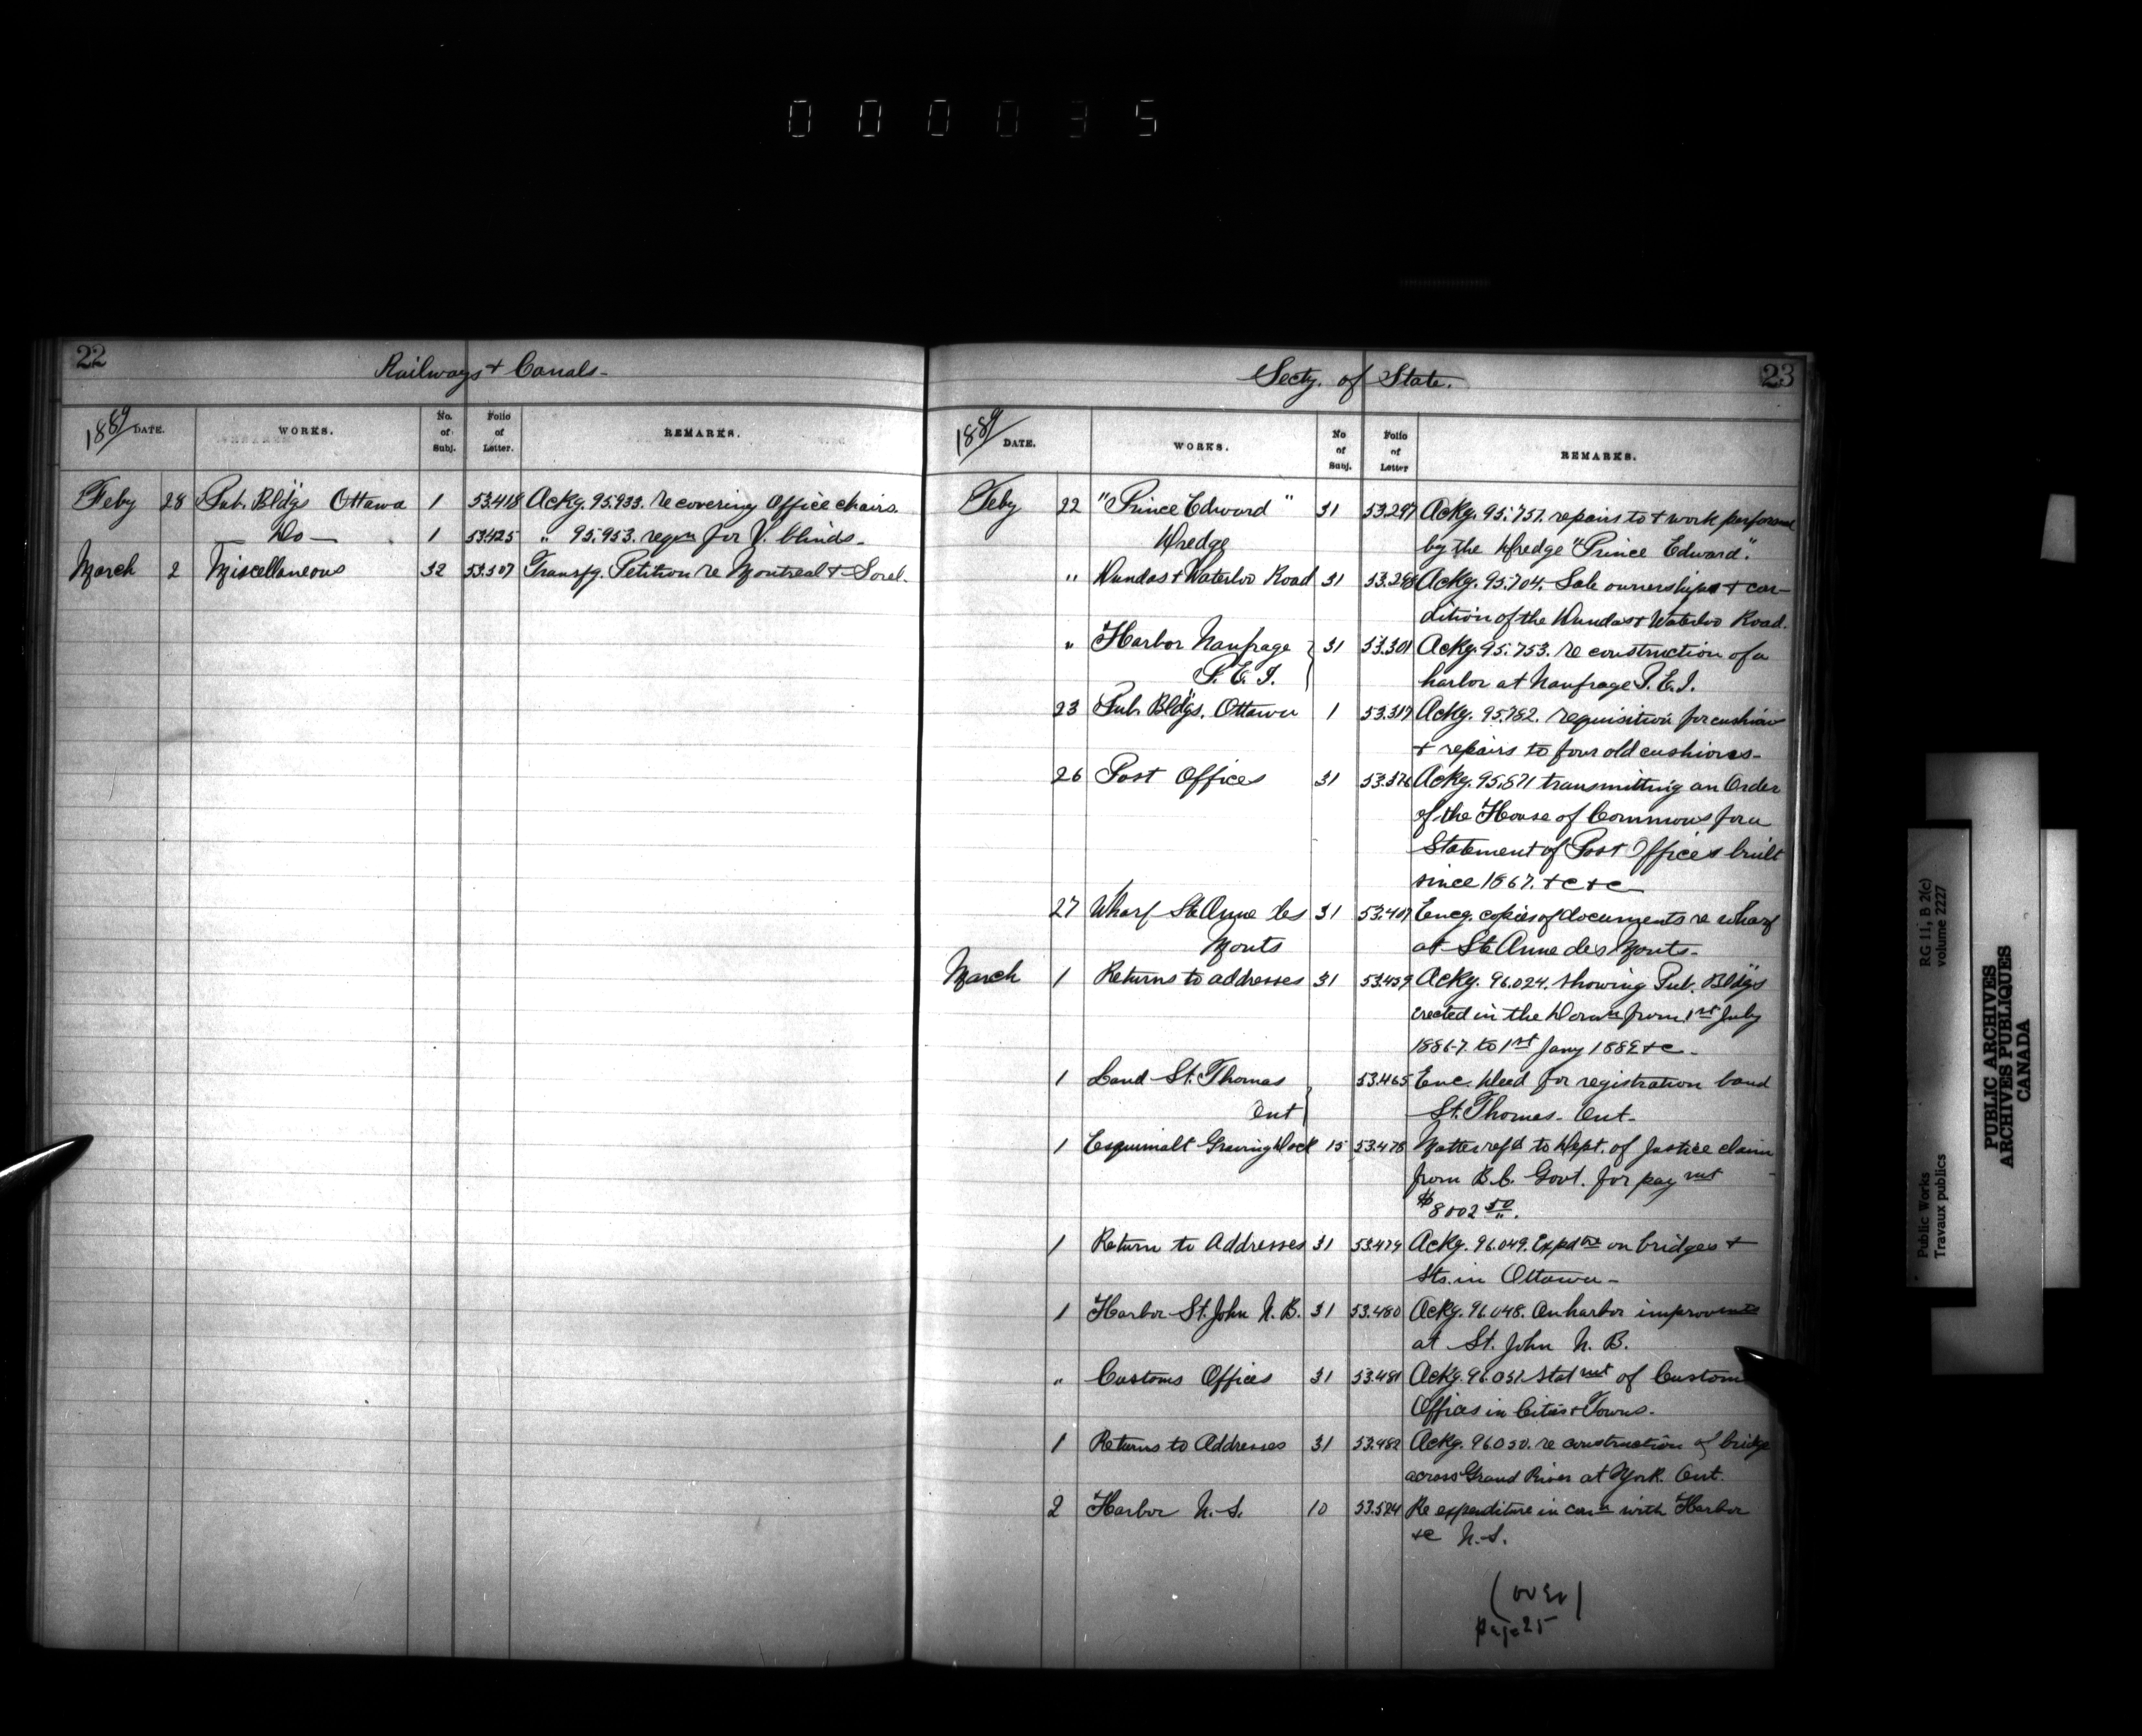 000035
22
Railways & Canals-
1889 DATE. WORKS. No. of Subj. Folio of Letter. REMARKS.
Feby 28 Pub. Bldgs Ottawa 1 53.418 Ackg. 95.933. re covering Office chairs.
Do 1 53.425 " 95.953. reqn for V. blinds-
March 2 Miscellaneous 32 53.507 Transfg. Petition re Montreal & Sorel.
23
Secty. of State.
1889 DATE. WORKS. No of Subj. Folio of Letter REMARKS.
Feby 22 "Prince Edward" 31 53.297 Ackg. 95.751. repairs to & work performed
Dredge by the Dredge "Prince Edward".
" Dundas & Waterloo Road 31 53.298 Ackg. 95.704. Sale ownership & con-
dition of the Dundas & Waterloo Road.
" Harbor Naufrage 31 53.301 Ackg. 95.753. re construction of a
P.E.I. harbor at Naufrage P.E.I.
23 Pub. Bldgs. Ottawa 1 53.317 Ackg. 95.782. requisition for cushion
& repairs to four old cushions-
26 Post Offices 31 53.376 Ackg. 95.871 transmitting an Order
of the House of Commons for a
Statement of Post Offices built
since 1867. &c &c
27 Wharf Ste Anne des 31 53.407 Encg. copies of documents re wharf
Monts at Ste Anne des Monts-
March 1 Returns to addresses 31 53.459 Ackg. 96.024. showing Pub. Bldgs
erected in the Domn from 1st July
to 1st Jany &c-
1 Land St. Thomas 53.465 Enc. Deed for registration land
Ont St. Thomas- Ont-
1 Esquimalt Graving Dock 15 53.478 Matter refd to Dept. of Justice claim
from B.C. Govt. for paymnt
$8002 50.
1 Return to Addresses 31 53.479 Ackg. 96.049. Expdre on bridges &
sts. in Ottawa-
1 Harbor St. John N.B. 31 53.480 Ackg. 96.048. On harbor improvmts
at St. John N.B.
" Customs Offices 31 53.481 Ackg. 96.051. Statmnt of Custom
Offices in Cities & Towns.
1 Returns to Addresses 31 53.482 Ackg. 96.050. re construction of bridge
across Grand River at York. Ont.
2 Harbor N.S. 10 53.524 Re expenditure in conn with Harbor
&c N.S.
(over)
page 25
RG 11, B 2(c)
volume 2227
Public Works
Travaux publics
PUBLIC ARCHIVES
ARCHIVES PUBLIQUES
CANADA